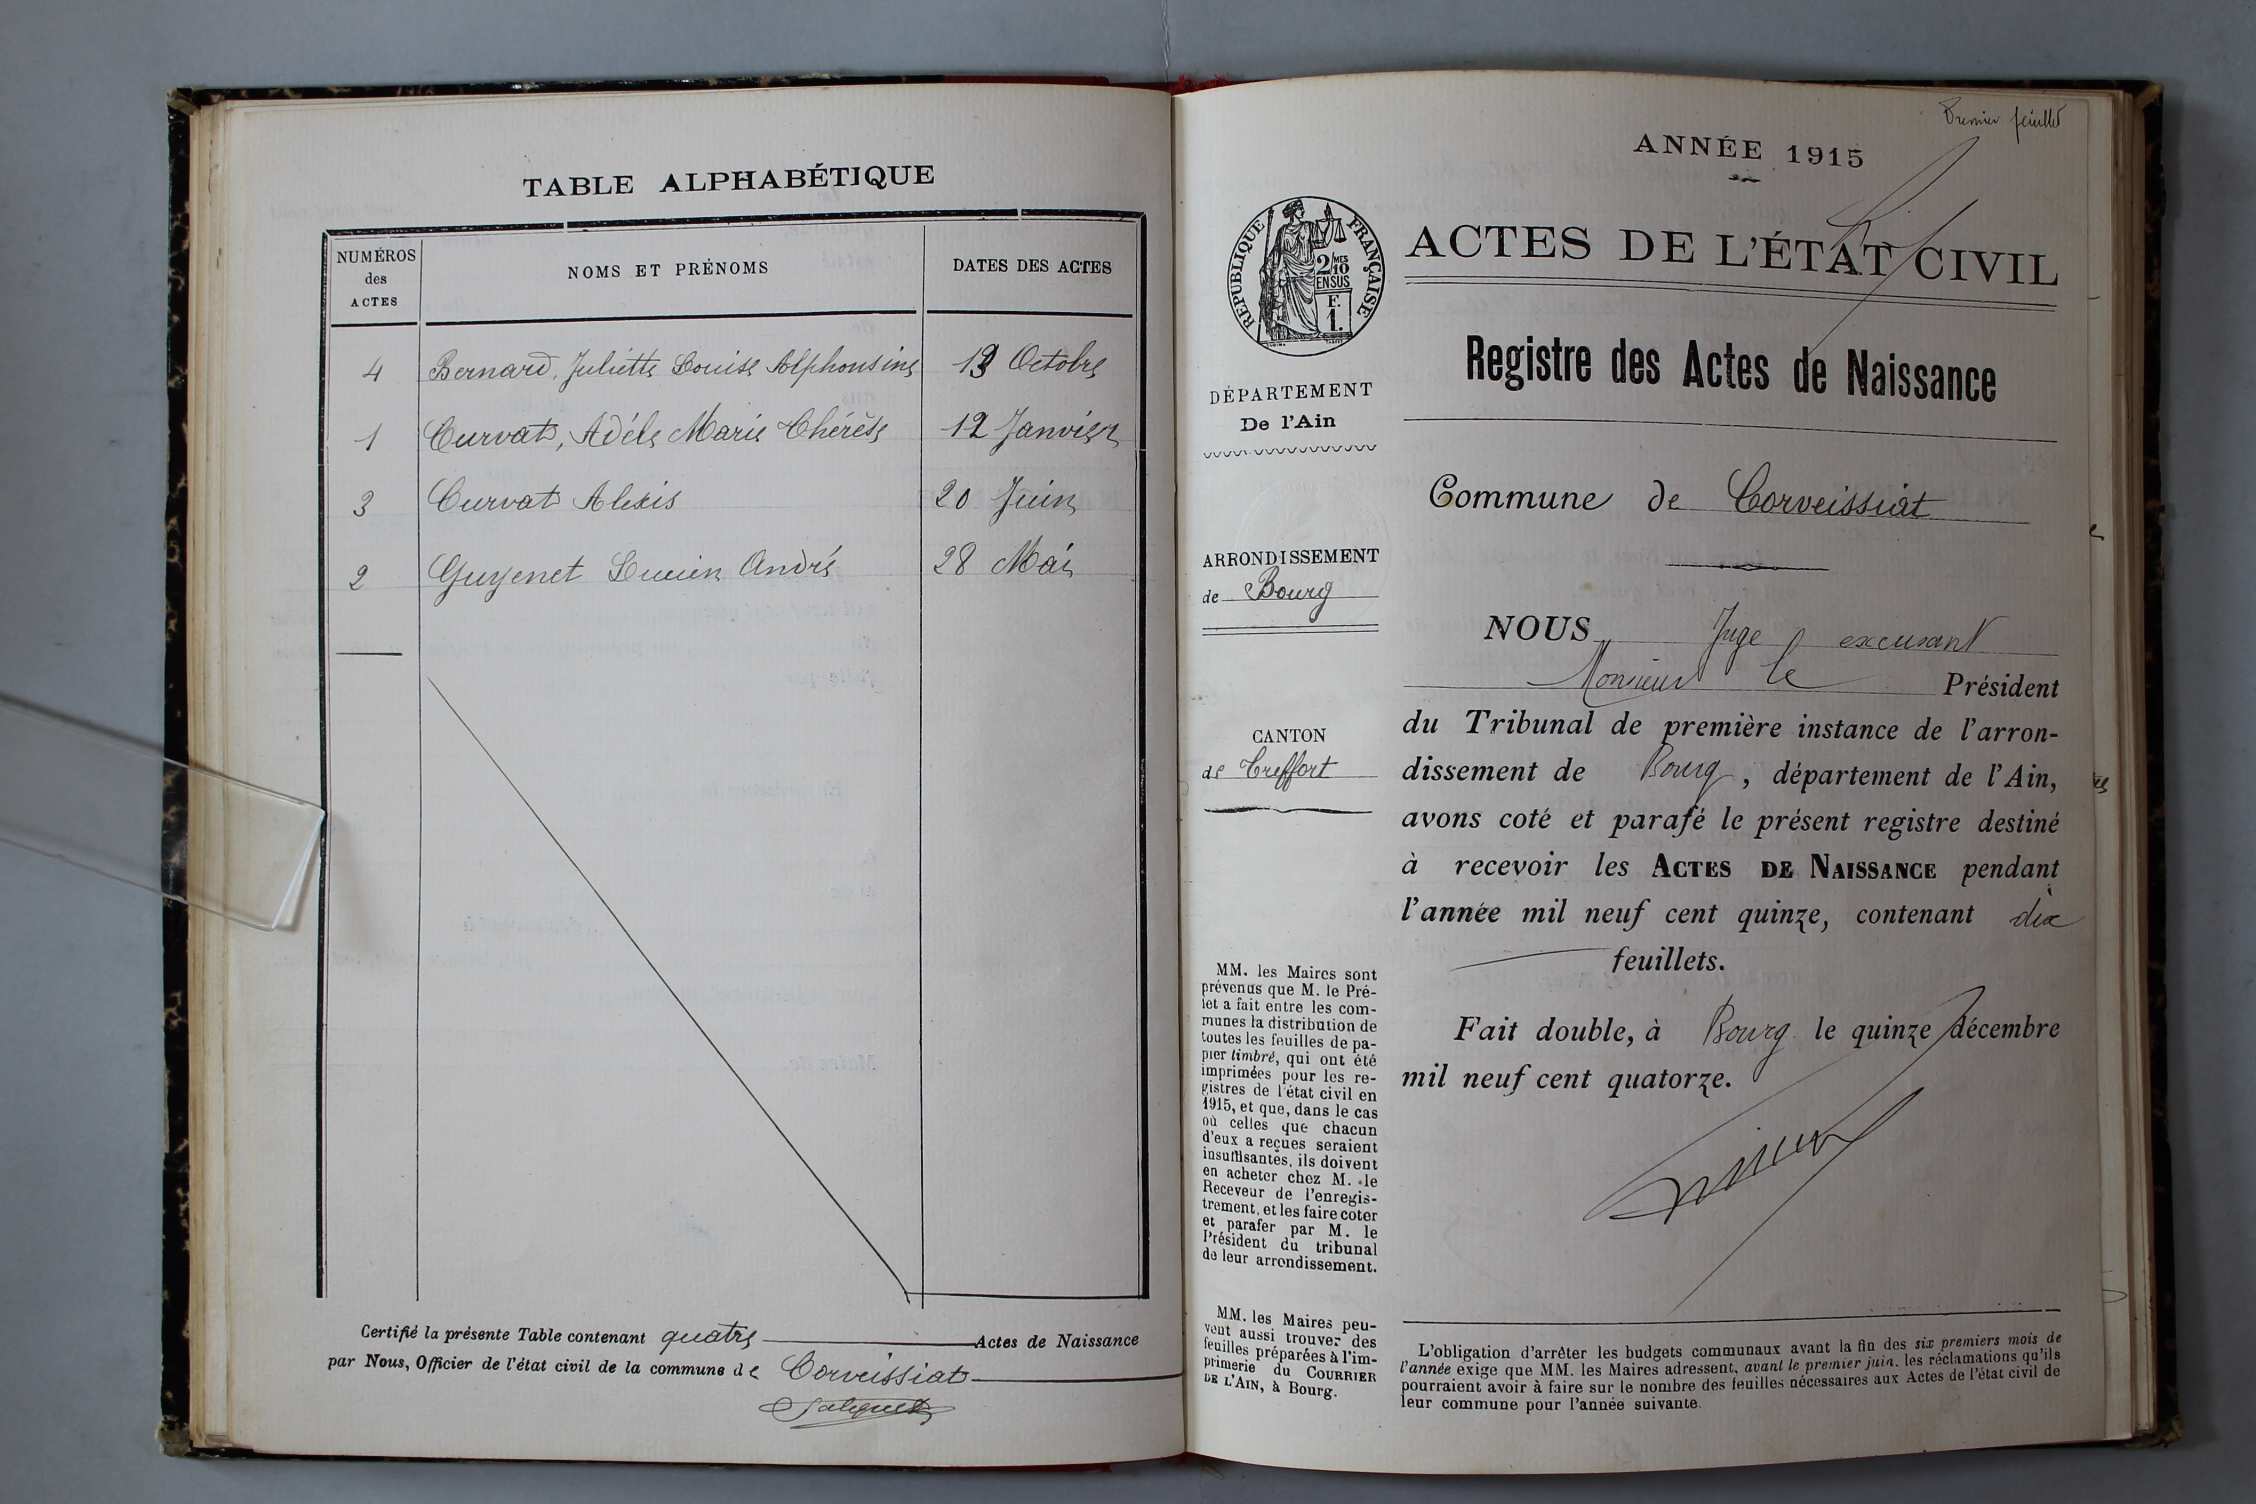 TABLE ALPHABÉTIQUE
NUMÉROS des ACTES
NOMS ET PRÉNOMS
DATES DES ACTES
4 Bernard, Juliette Louise Alphonsine 13 Octobre
1 Curvat, Adèle Marie Thérèse 12 Janvier
3 Curvat Alexis 20 Juin
2 Guyenet Lucien André 28 Mai
Certifié la présente Table contenant quatre Actes de Naissance
par Nous, Officier de l'état civil de la commune de Corveissiat
Premier feuillet
ANNÉE 1915
RÉPUBLIQUE FRANÇAISE
2/10 MES
EN SUS
F.
1.
ACTES DE L'ÉTAT CIVIL
Registre des Actes de Naissance
DÉPARTEMENT
De l'Ain
Commune de Corveissiat
ARRONDISSEMENT
de Bourg
NOUS Juge excusant
Monsieur le Président
du Tribunal de première instance de l'arron-
dissement de Bourg, département de l'Ain,
avons coté et parafé le présent registre destiné
à recevoir les ACTES DE NAISSANCE pendant
l'année mil neuf cent quinze, contenant dix
feuillets.
Fait double, à Bourg le quinze décembre
mil neuf cent quatorze.
CANTON
de Treffort
MM. les Maires sont
prévenus que M. le Pré-
fet a fait entre les com-
munes la distribution de
toutes les feuilles de pa-
pier timbré, qui ont été
imprimées pour les re-
gistres de l'état civil en
1915, et que, dans le cas
où celles que chacun
d'eux a reçues seraient
insuffisantes, ils doivent
en acheter chez M. le
Receveur de l'enregis-
trement, et les faire coter
et parafer par M. le
Président du tribunal
de leur arrondissement.
MM. les Maires peu-
vent aussi trouver des
feuilles préparées à l'im-
primerie du COURRIER
DE L'AIN, à Bourg.
L'obligation d'arrêter les budgets communaux avant la fin des six premiers mois de
l'année exige que MM. les Maires adressent, avant le premier juin, les réclamations qu'ils
pourraient avoir à faire sur le nombre des feuilles nécessaires aux Actes de l'état civil de
leur commune pour l'année suivante.